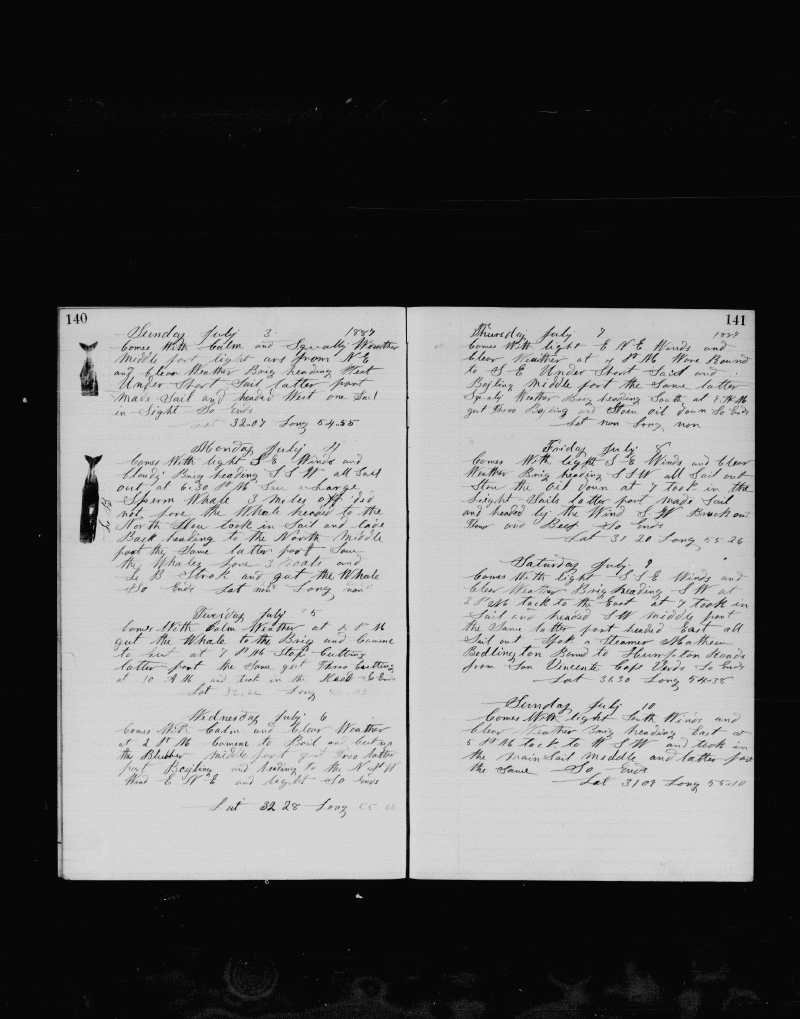 140
Sunday July 3 1887
Comes With Calm and Squally Weather
Middle part light airs from N E
and Clear Weather Brig heading West
Under Short Sail latter part
Made Sail and headed West one Sail
in Sight So Ends
Lat 32.07 Long 54.55
Monday July 4
Comes With light S E Winds and
Cloudy Brig heading S S W all Sail
out at 6.30 P M Saw a large
Sperm Whale 3 Miles off did
not lore the Whale headed to the
North Stou took in Sail and
Back heading to the North Middle
part the Same latter part Saw
the Whales lore 3 Boats and
L B Strok and gut the Whale
So Ends Lat non Long non
L B
Tuesday July 5
Comes With Calm Weather at P M
gut the Whale to the Brig and Comme
to Cut at 7 P M Stop Cutting
latter part the Same gut Throo Cutting
at 10 A M and took in the Head So Ends
Lat 32.22 Long
Wednesday July 6
Comes With Calm and Clear Weather
at 2 P M Comenc to Boil and
the Blubber Middle part gut Throo latter
part Boyling and heading to the N W
Wind E N E and light So Ends
Lat 32 28 Long 55
141
Thursday July 7 1887
Comes With light E N E Winds and
Clear Weather at P M Wore Round
to S E Under Short Sail and
Boyling Middle part the Same latter
Squaly Weather Brig heading South at P M
gut Throo Boyling and Stoen oil down So Ends
Lat non Long non
Friday July 8
Comes With light S E Winds and Clear
Weather Brig heading S S W all Sail out
Stou the Oil down at 7 took in the
Light Sails latter part Made Sail
and headed by the Wind S W Brock out
Flour and Beef So Ends
Lat 31 20 Long 55 26
Saturday July 9
Comes With light S S E Winds and
Clear Weather Brig heading S W at
3 P M tack to the East at 7 took in
Sail and headed S W Middle part
the Same latter part headed East all
Sail out Spok a Steamer Mathew
Bedlington Bound to Humpton Roads
from San Vincente Cape Verds So Ends
Lat 31.30 Long 54.38
Sunday July 10
Comes With light South Winds and
Clear Weather Brig heading East at
5 P M tack to W S W and took in
the Main Sail Middle and latter part
the Same So Ends
Lat 31 09 Long 55.10